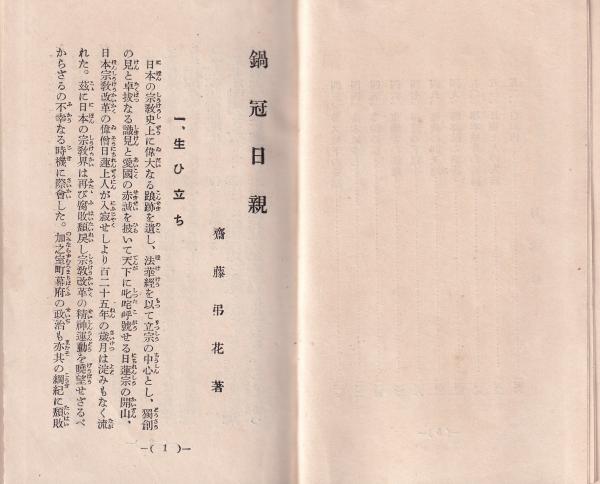 鍋冠日親
齋藤弔花著
一、生ひ立ち
日本の宗敎史上に偉大なる踉跡を遺し、法華經を以て立宗の中心とし、獨創
の見と卓拔なる識見と愛國の赤誠を披いて天下に叱咤呼號せる日蓮宗の開山、
日本宗敎改革の偉僧日蓮上人が入寂せしより百二十五年の歲月は淀みもなく流
れた。茲に日本の宗敎界は再び腐敗頽戾し宗敎改革の精神運動を曉望せざるべ
からざるの不幸なる時機に際會した。加之室町幕府の政治も亦共の綱紀に頽敗
—( 1 )—